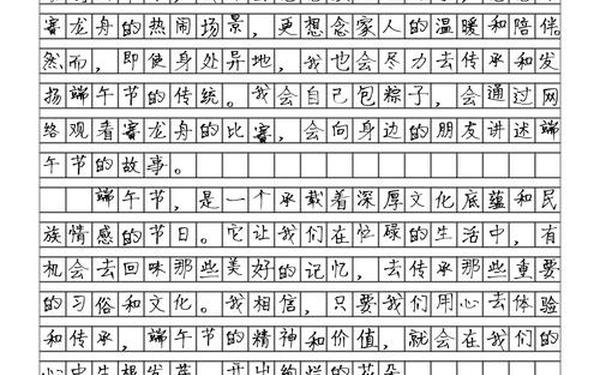 赛龙舟的热闹场景,更想念家人的温暖和陪伴
然而,即使身处异地,我也会尽力去传承和发
扬端午节的传统。我会自己包粽子,会通过网
络观看赛龙舟的比赛,会向身边的朋友讲述端
午节的故事。
端午节,是一个承载着深厚文化底蕴和民
族情感的节日。它让我们在忙碌的生活中,有
机会去回味那些美好的记忆,去传承那些重要
的习俗和文化。我相信,只要我们用心去体验
和传承,端午节的精神和价值,就会在我们的
心中生根发芽,开出绚烂的花朵